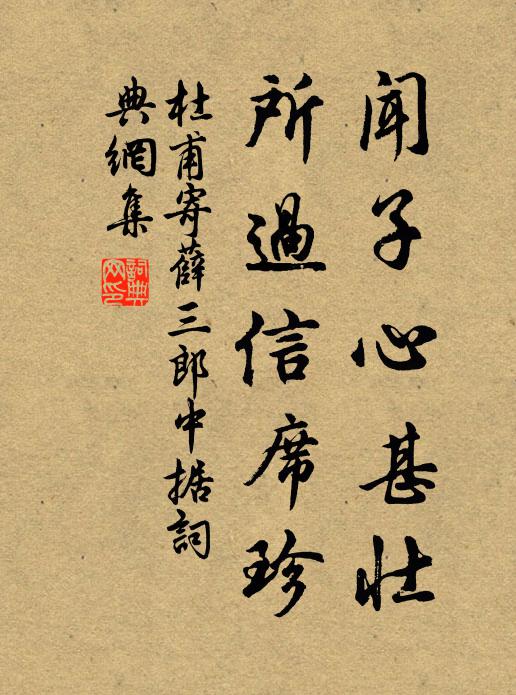 闻子心甚壮
所過信席珍
杜甫寄薛三郎中据詞
典網集
詞典
网印